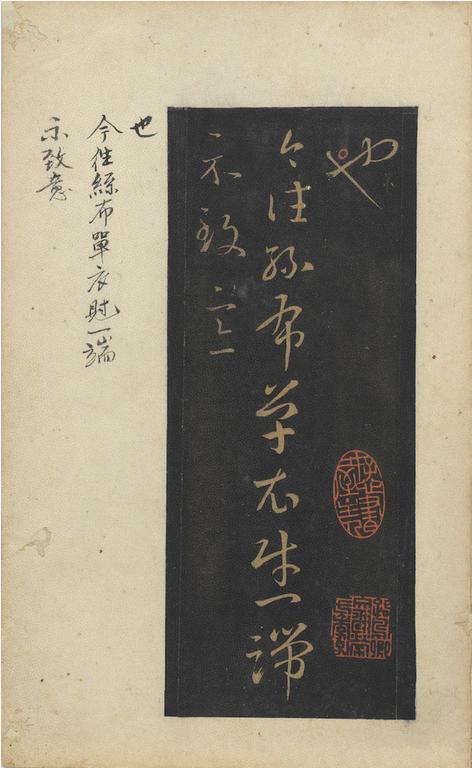 也
今往絲布單衣財一端
示致意
也
今往絲布單衣財一端
示致意